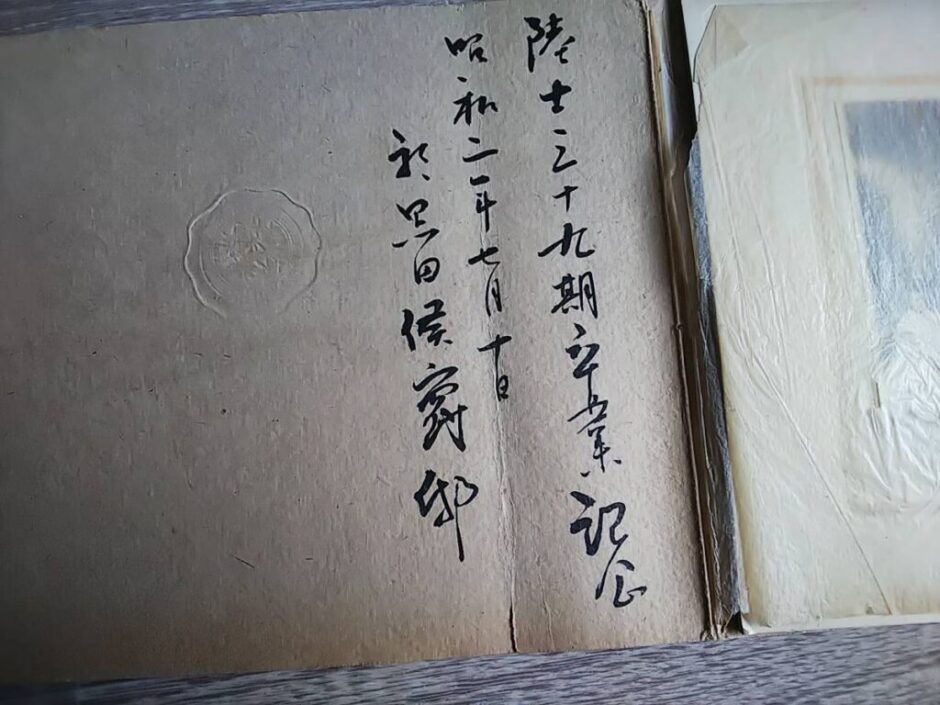 陸士三十九期卒業記念
昭和二年七月十日
於黒田侯爵邸